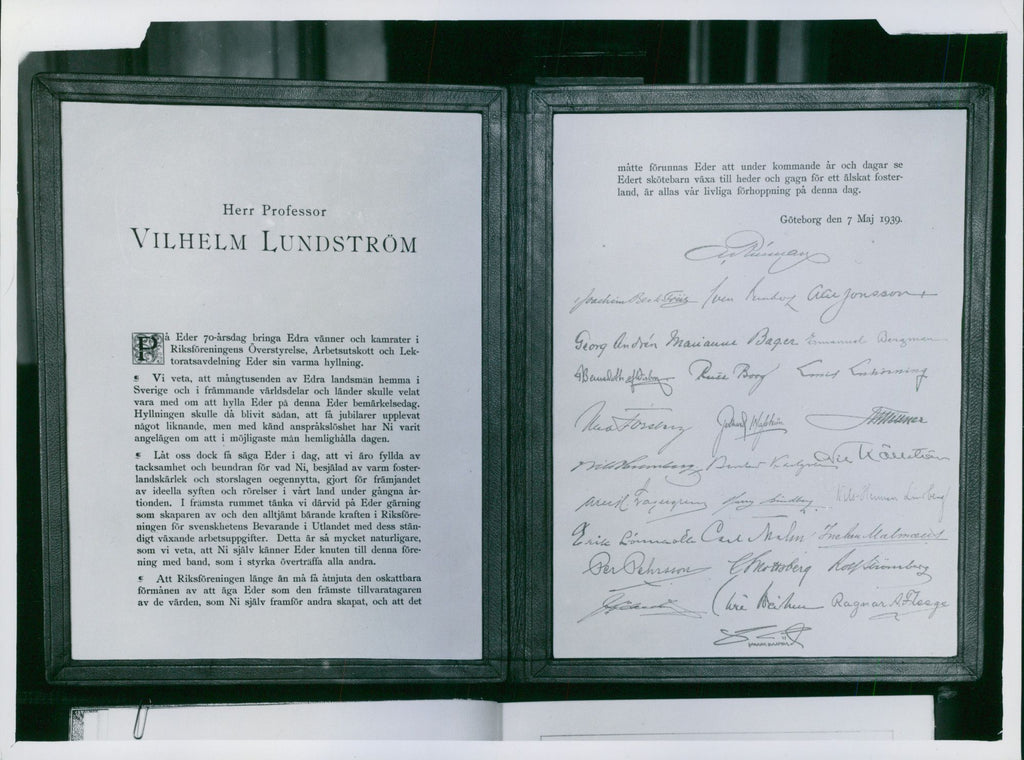 Herr Professor
VILHELM LUNDSTRÖM
På Eder 70-årsdag bringa Edra vänner och kamrater i
Riksföreningens Överstyrelse, Arbetsutskott och Lek-
toratsavdelning Eder sin varma hyllning.
¶ Vi veta, att mångtusenden av Edra landsmän hemma i
Sverige och i främmande världsdelar och länder skulle velat
vara med om att hylla Eder på denna Eder bemärkelsedag.
Hyllningen skulle då blivit sådan, att få jubilarer upplevat
något liknande, men med känd anspråkslöshet har Ni varit
angelägen om att i möjligaste mån hemlighålla dagen.
¶ Låt oss dock få säga Eder i dag, att vi äro fyllda av
tacksamhet och beundran för vad Ni, besjälad av varm foster-
landskärlek och storslagen oegennytta, gjort för främjandet
av ideella syften och rörelser i vårt land under gångna år-
tionden. I främsta rummet tänka vi därvid på Eder gärning
som skaparen av och den alltjämt bärande kraften i Riksföre-
ningen för svenskhetens Bevarande i Utlandet med dess stän-
digt växande arbetsuppgifter. Detta är så mycket naturligare,
som vi veta, att Ni själv känner Eder knuten till denna före-
ning med band, som i styrka överträffa alla andra.
¶ Att Riksföreningen länge än må få åtnjuta den oskattbara
förmånen av att äga Eder som den främste tillvaratagaren
av de värden, som Ni själv framför andra skapat, och att det
måtte förunnas Eder att under kommande år och dagar se
Edert skötebarn växa till heder och gagn för ett älskat foster-
land, är allas vår livliga förhoppning på denna dag.
Göteborg den 7 Maj 1939.
Joachim Sven Jonsson
Georg Andrén Marianne Bager Emanuel Bergman
Boog
Nils
Lindberg
Erik Lönnroth Carl Malm Malmquist
Per Pehrsson Rolf Strömberg
Ragnar A. Flegge